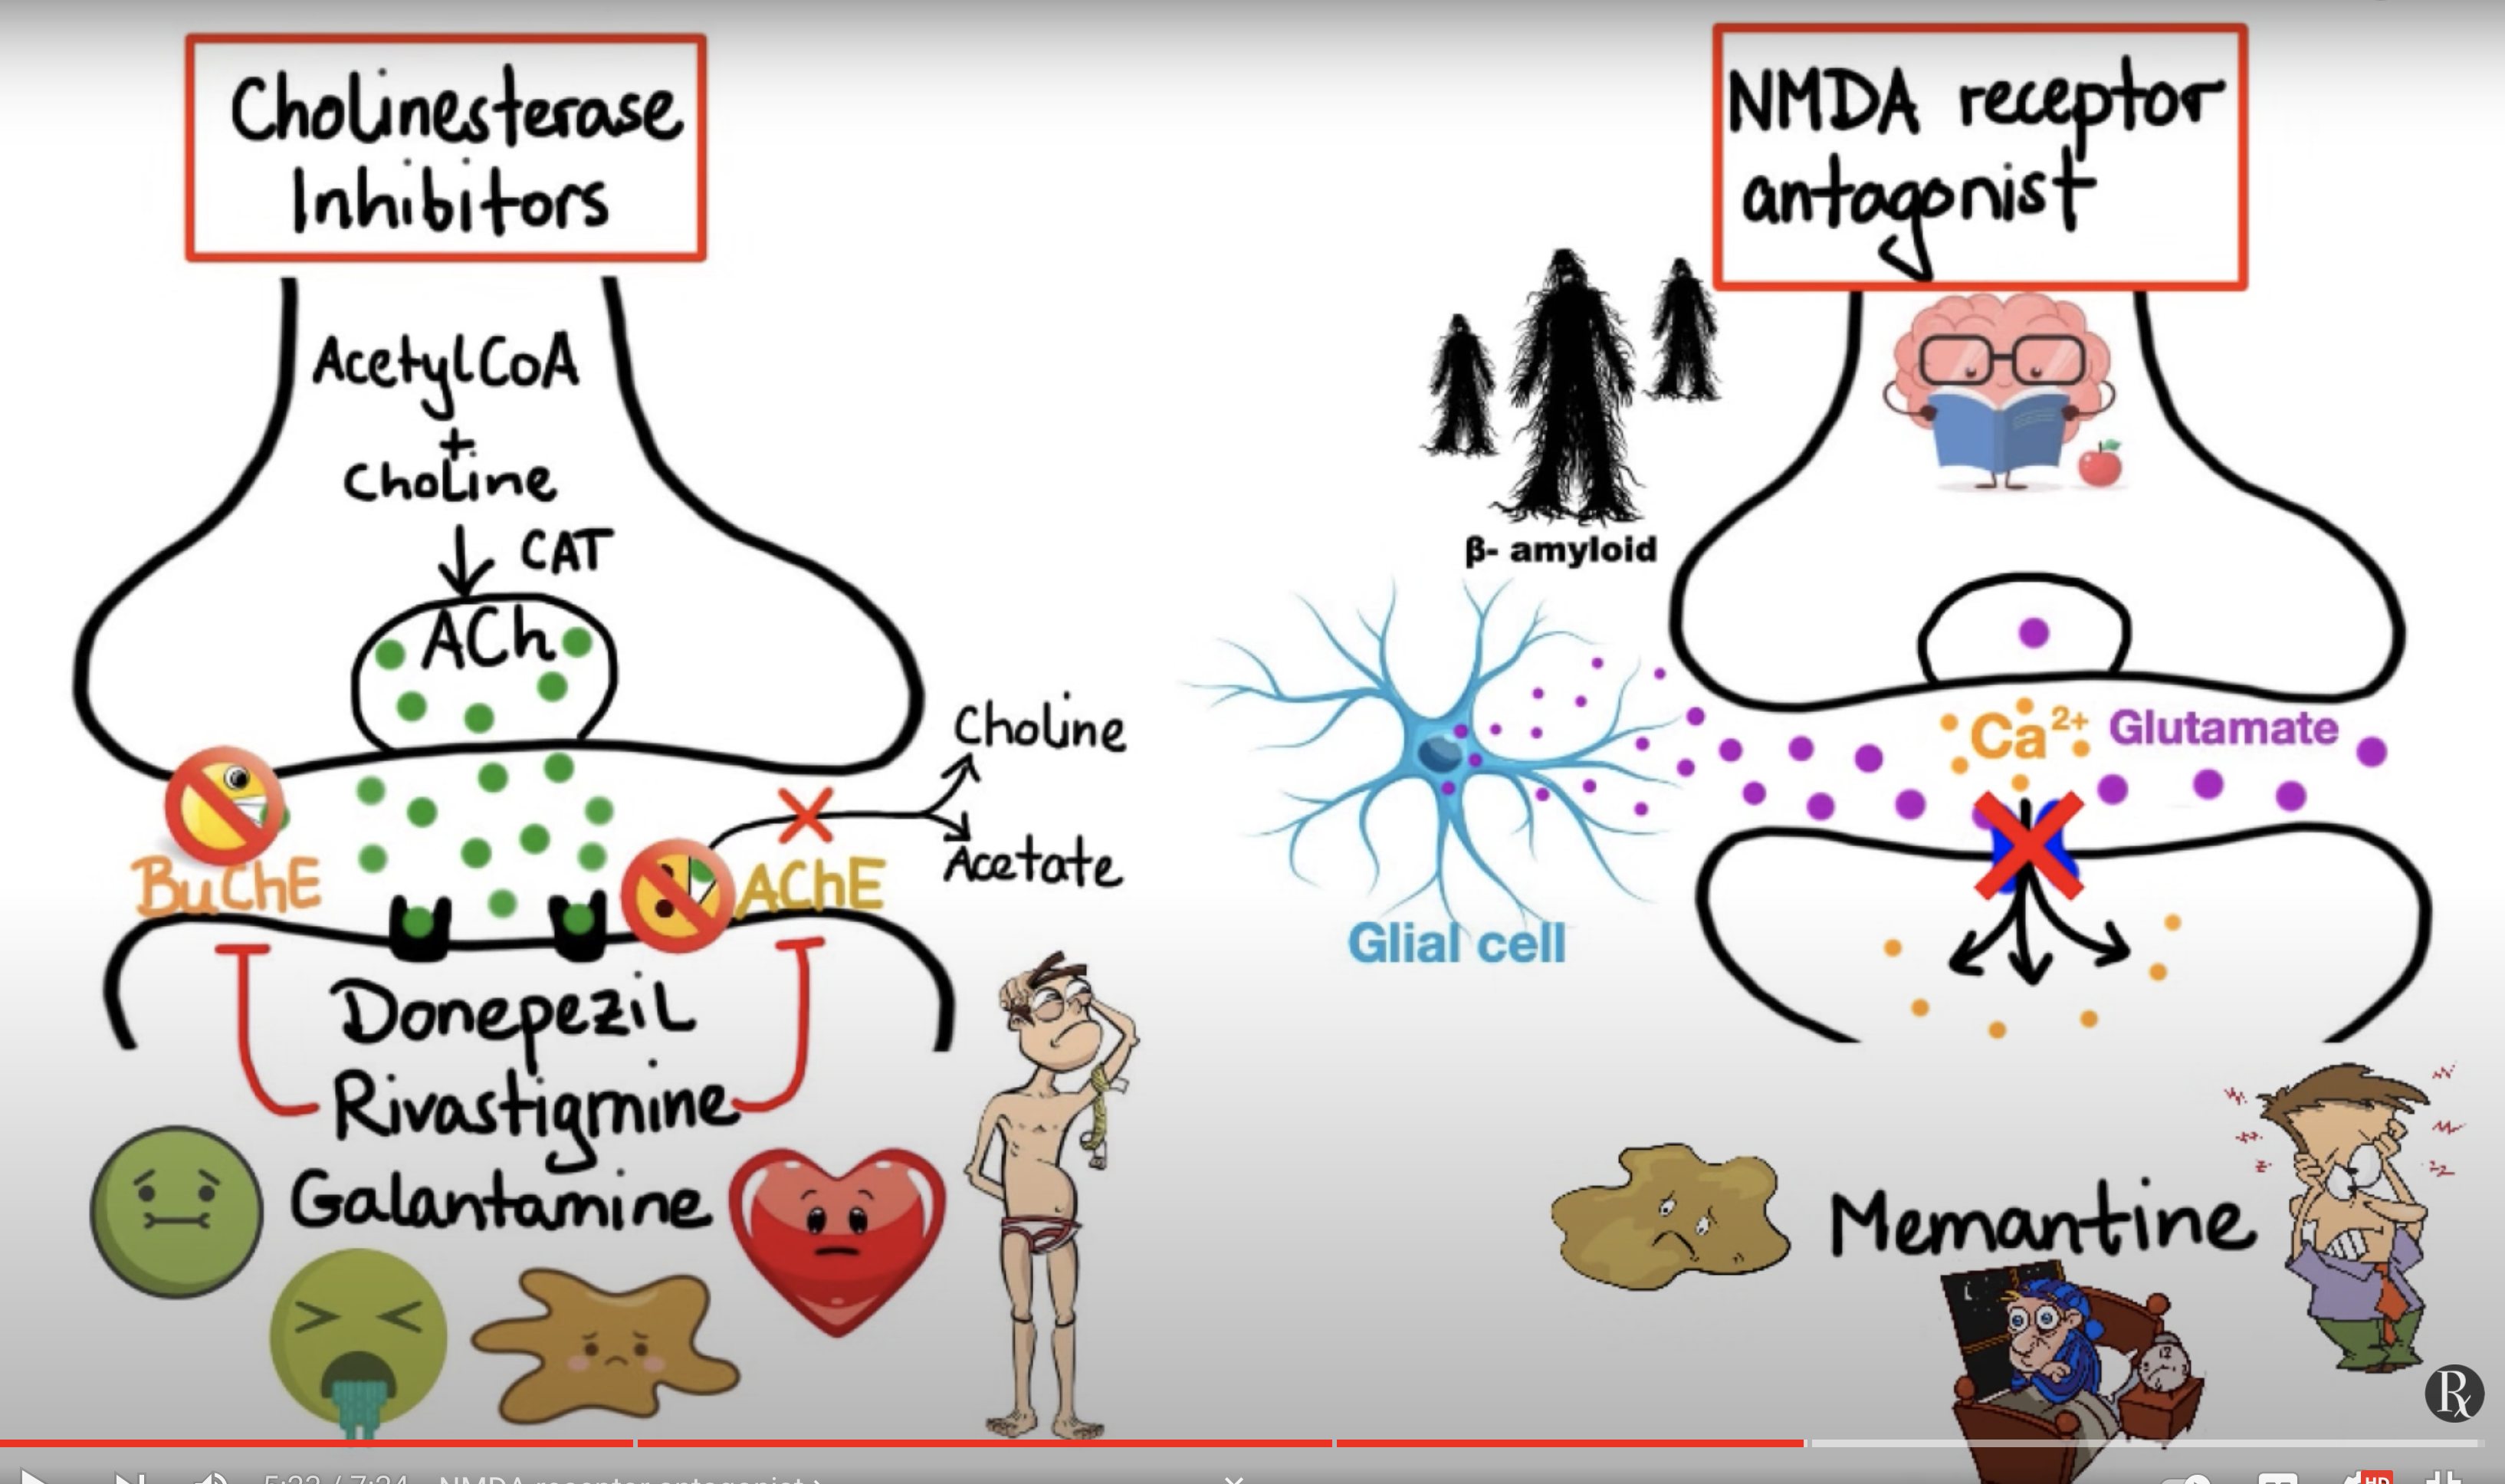 Cholinesterase
Inhibitors
AcetylCoA
+
Choline
CAT
ACh
Choline
Acetate
BuChE
AChE
Donepezil
Rivastigmine
Galantamine
NMDA receptor
antagonist
β- amyloid
Ca²⁺
Glutamate
Glial cell
Memantine
Rx
5:23 / 7:24
NMDA receptor antagonist
HD